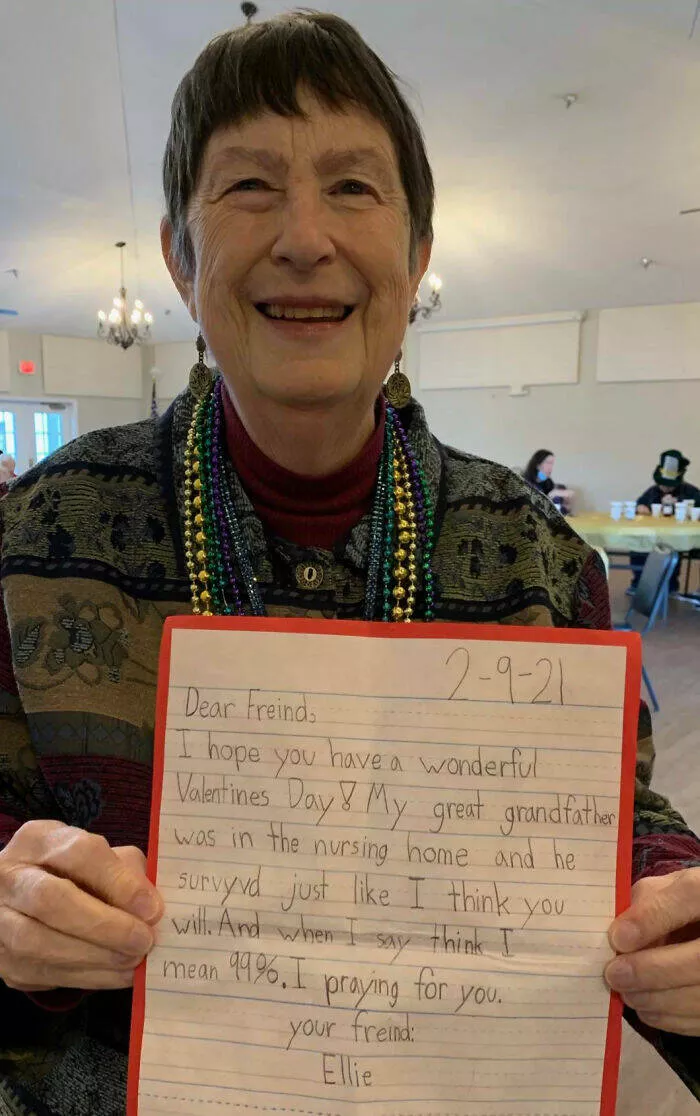 2-9-21
Dear Freind,
I hope you have a wonderful
Valentines Day! My great grandfather
was in the nursing home and he
survyvd just like I think you
will. And when I say think I
mean 99%. I praying for you.
your freind:
Ellie